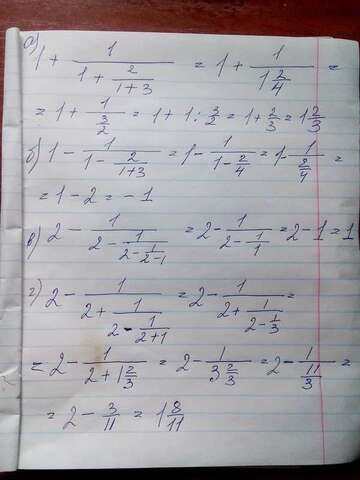 а) 1 + 1/(1 + 2/(1+3)) = 1 + 1/(1 2/4) =
= 1 + 1/(3/2) = 1 + 1 : 3/2 = 1 + 2/3 = 1 2/3
б) 1 - 1/(1 - 2/(1+3)) = 1 - 1/(1 - 2/4) = 1 - 1/(2/4) =
= 1 - 2 = -1
в) 2 - 1/(2 - 1/(2 - 1/(2-1))) = 2 - 1/(2 - 1/1) = 2 - 1 = 1
г) 2 - 1/(2 + 1/(2 - 1/(2+1))) = 2 - 1/(2 + 1/(2 - 1/3)) =
= 2 - 1/(2 + 1 2/3) = 2 - 1/(3 2/3) = 2 - 1/(11/3) =
= 2 - 3/11 = 1 8/11